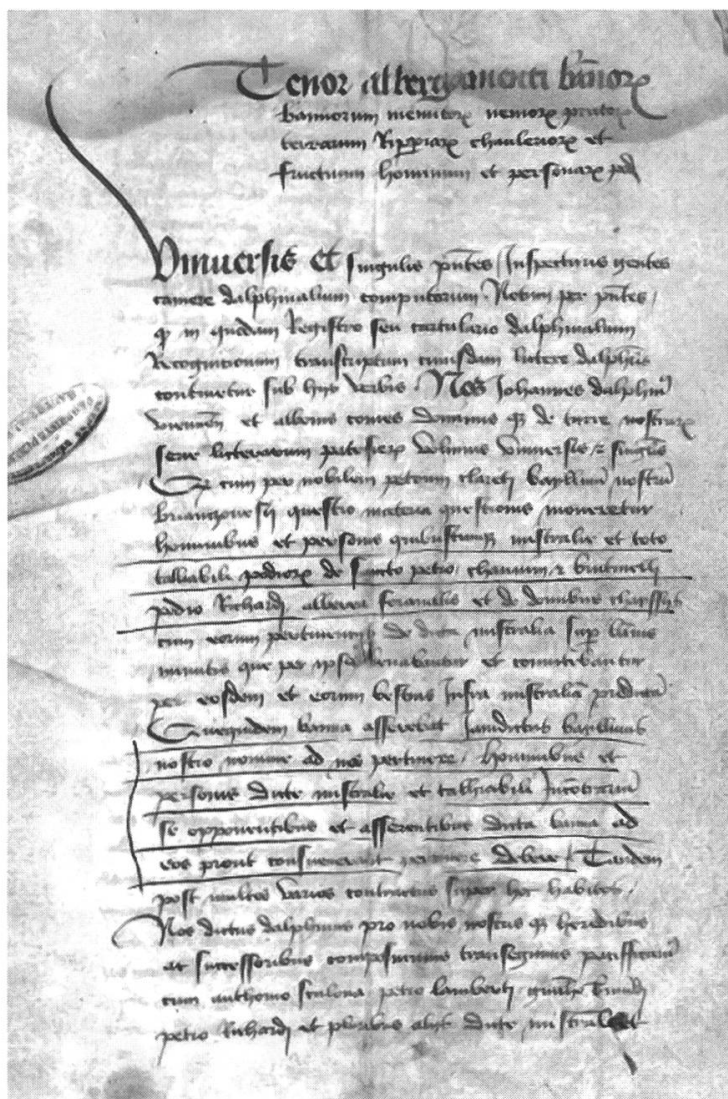 Tenor albergamenti bannorx
bannorum minutorx nemorx pratorx
terrarum Rippiarx chauleriorx et
fructuum hominum et personarx pod
Universis et singulis pntes Inspecturis gentes
camere dalphinalium computorum. Notum per pntes
q in quodam Registro seu cartulario dalphinalium
Recognitionum transcriptum cuiusdam littere dalphis
continetur sub hys verbis. Nos Johannes dalphin
vienneñ et albonis comes dominus q de turre nostrarx
serie litterarum patefierx volumus universis z singulis
Q cum per nobilem petrum clareti bayllium nostrũ
brianczonesii questio materia questionis moveretur
hominibus et personis quibuscumq mistralie et toto
talliabili podiorx de sancto petro, chanum z
podio Richardi albera et de domibus
cum eorum pertinenciis de dicta mistralia sup bãnis
minutis que per ipsos levabantur et comittebantur
per eosdem et eorum bestias Infra mistraliã predictã
Quequidem banna asserebat Jamdictus bayllivus
nostro nomine ad nos pertinere, hominibus et
personis dicte mistralie et talliabili Incõtrariũ
se opponentibus et asserentibus dicta banna ad
eos prout consueverant pertinere debere. Tandem
post multos varios contractus super hoc habitos,
Nos dictus dalphinus pro nobis nostris q heredibus
ac successoribus composuimus transegimus
cum anthonio petro lamberti
petro Richardi et pluribus alys dicte mistral et